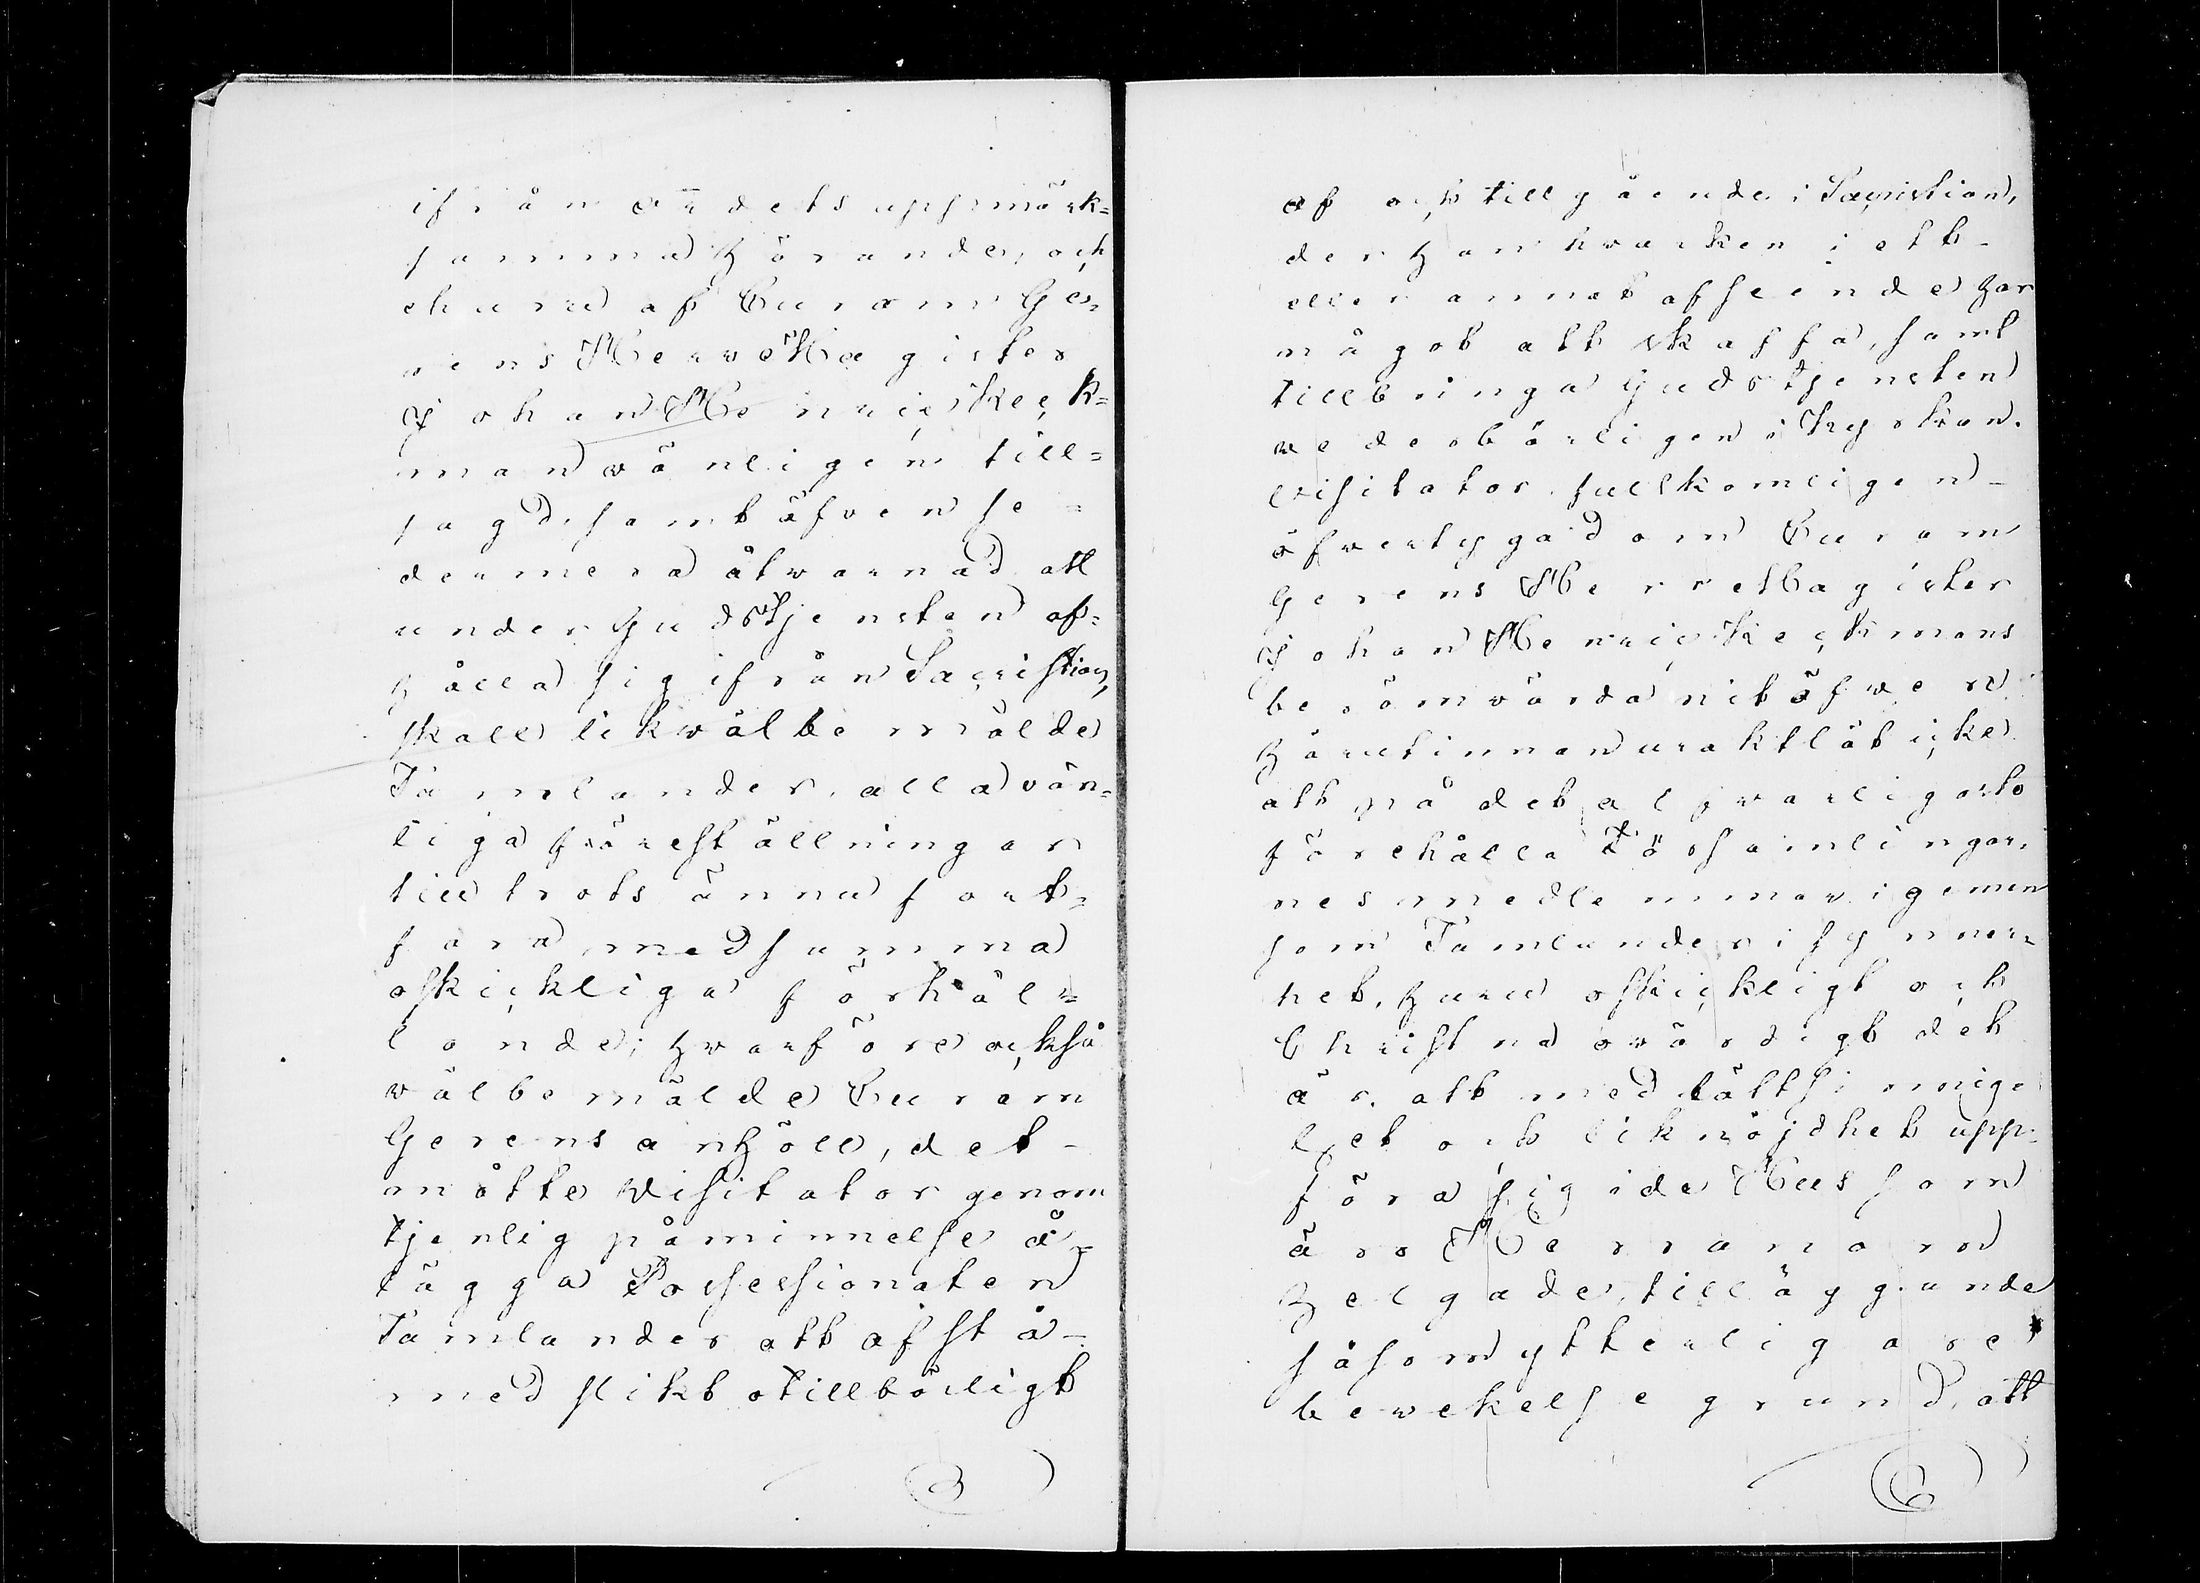 ifrån ordets uppmärk=
samma hörande, och
ehuru af Curam Ge=
rens Herr Magister
Johan Henric Keck=
man vänligen till=
sagd, samt äfven se=
dermera åtvarnad att
under Gudstjensten af=
hålla sig ifrån Sacristian,
skall likväl bemälde
Tamlander, alla vän=
liga föreställningar
till trots ännu fort=
fara med samma
oskickliga förhål=
lande; hvarföre också
välbemälde Curam
Gerens anhöll, det
måtte Visitator genom
tjenlig påminnelse å=
lägga Possessionaten
Tamlander att afstå
med slikt otillbörligt
af och tillgående i Sacristian,
der han hvarken i ett
eller annat afseende har
något att skaffa, samt
tillbringa Gudstjensten
vederbörligen i Kyrkan.
Visitator fullkomligen
öfvertygad om Curam
Gerens Herr Magister
Johan Henric Keckmans
berömvärda nit öfven
härutinnan uraktlät icke
att på det alfvarligaste
förehålla Församlingar,
nes medlemmar i gemen
som Tamlander i synner=
het, huru oskickligt och
Christna ovärdigt det
är, att med lättsinnig=
het och liknöjdhet upp=
föra sig i de Hus som
äro Herranom
helgade, tilläggande
såsom ytterligare
bevekelsegrund, att